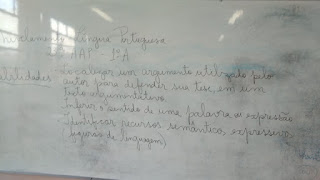 Nivelamento Língua Portuguesa
AAP 1º A
Habilidades: Localizar um argumento utilizado pelo
autor para defender sua tese, em um
texto argumentativo.
Inferir o sentido de uma palavra ou expressão
Identificar recursos semântico expressivo
(figuras de linguagem)